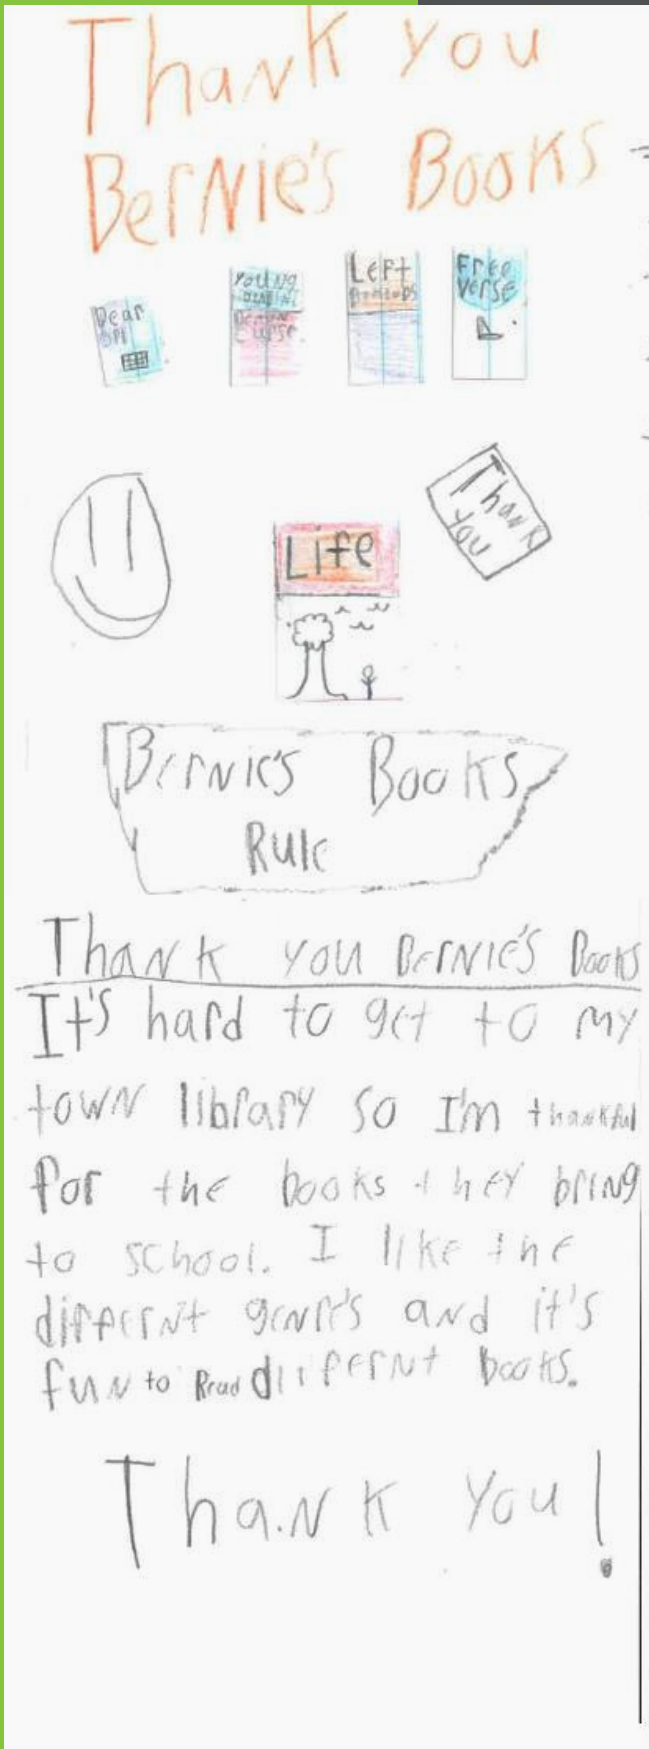 Thank you
Bernie's Books
Dear
Young
Left
Free
verse
curse
Thank
you
Life
Bernie's Books
Rule
Thank you Bernie's Books
It's hard to get to my
town library so I'm thankful
for the books they bring
to school. I like the
differnt genre's and it's
fun to Read differnt books.
Thank you!